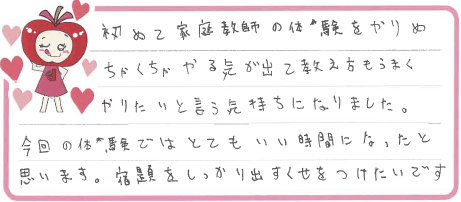 初めて家庭教師の体験をかりめ
ちゃくちゃやる気が出て教え方もうまく
かりたいと言う気持ちになりました。
今回の体験ではとてもいい時間になったと
思います。宿題をしっかり出すくせをつけたいです